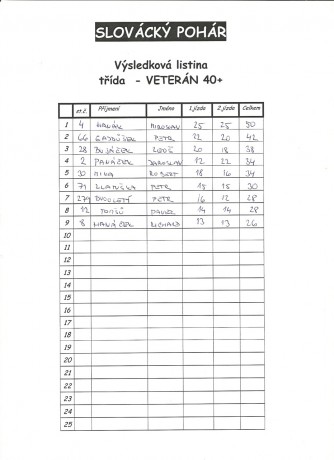 SLOVÁCKÝ POHÁR
Výsledková listina
třída - VETERÁN 40+
st.č. Příjmení Jméno 1.jízda 2.jízda Celkem
1 4 MIROSLAV 25 25 50
2 66 PETR 22 20 42
3 28 20 18 38
4 2 JAROSLAV 12 22 34
5 30 ROBERT 18 16 34
6 71 PETR 15 30
7 PETR 16 12 28
8 12 14 14 28
9 8 HANÁČEK RICHARD 13 13 26
10
11
12
13
14
15
16
17
18
19
20
21
22
23
24
25